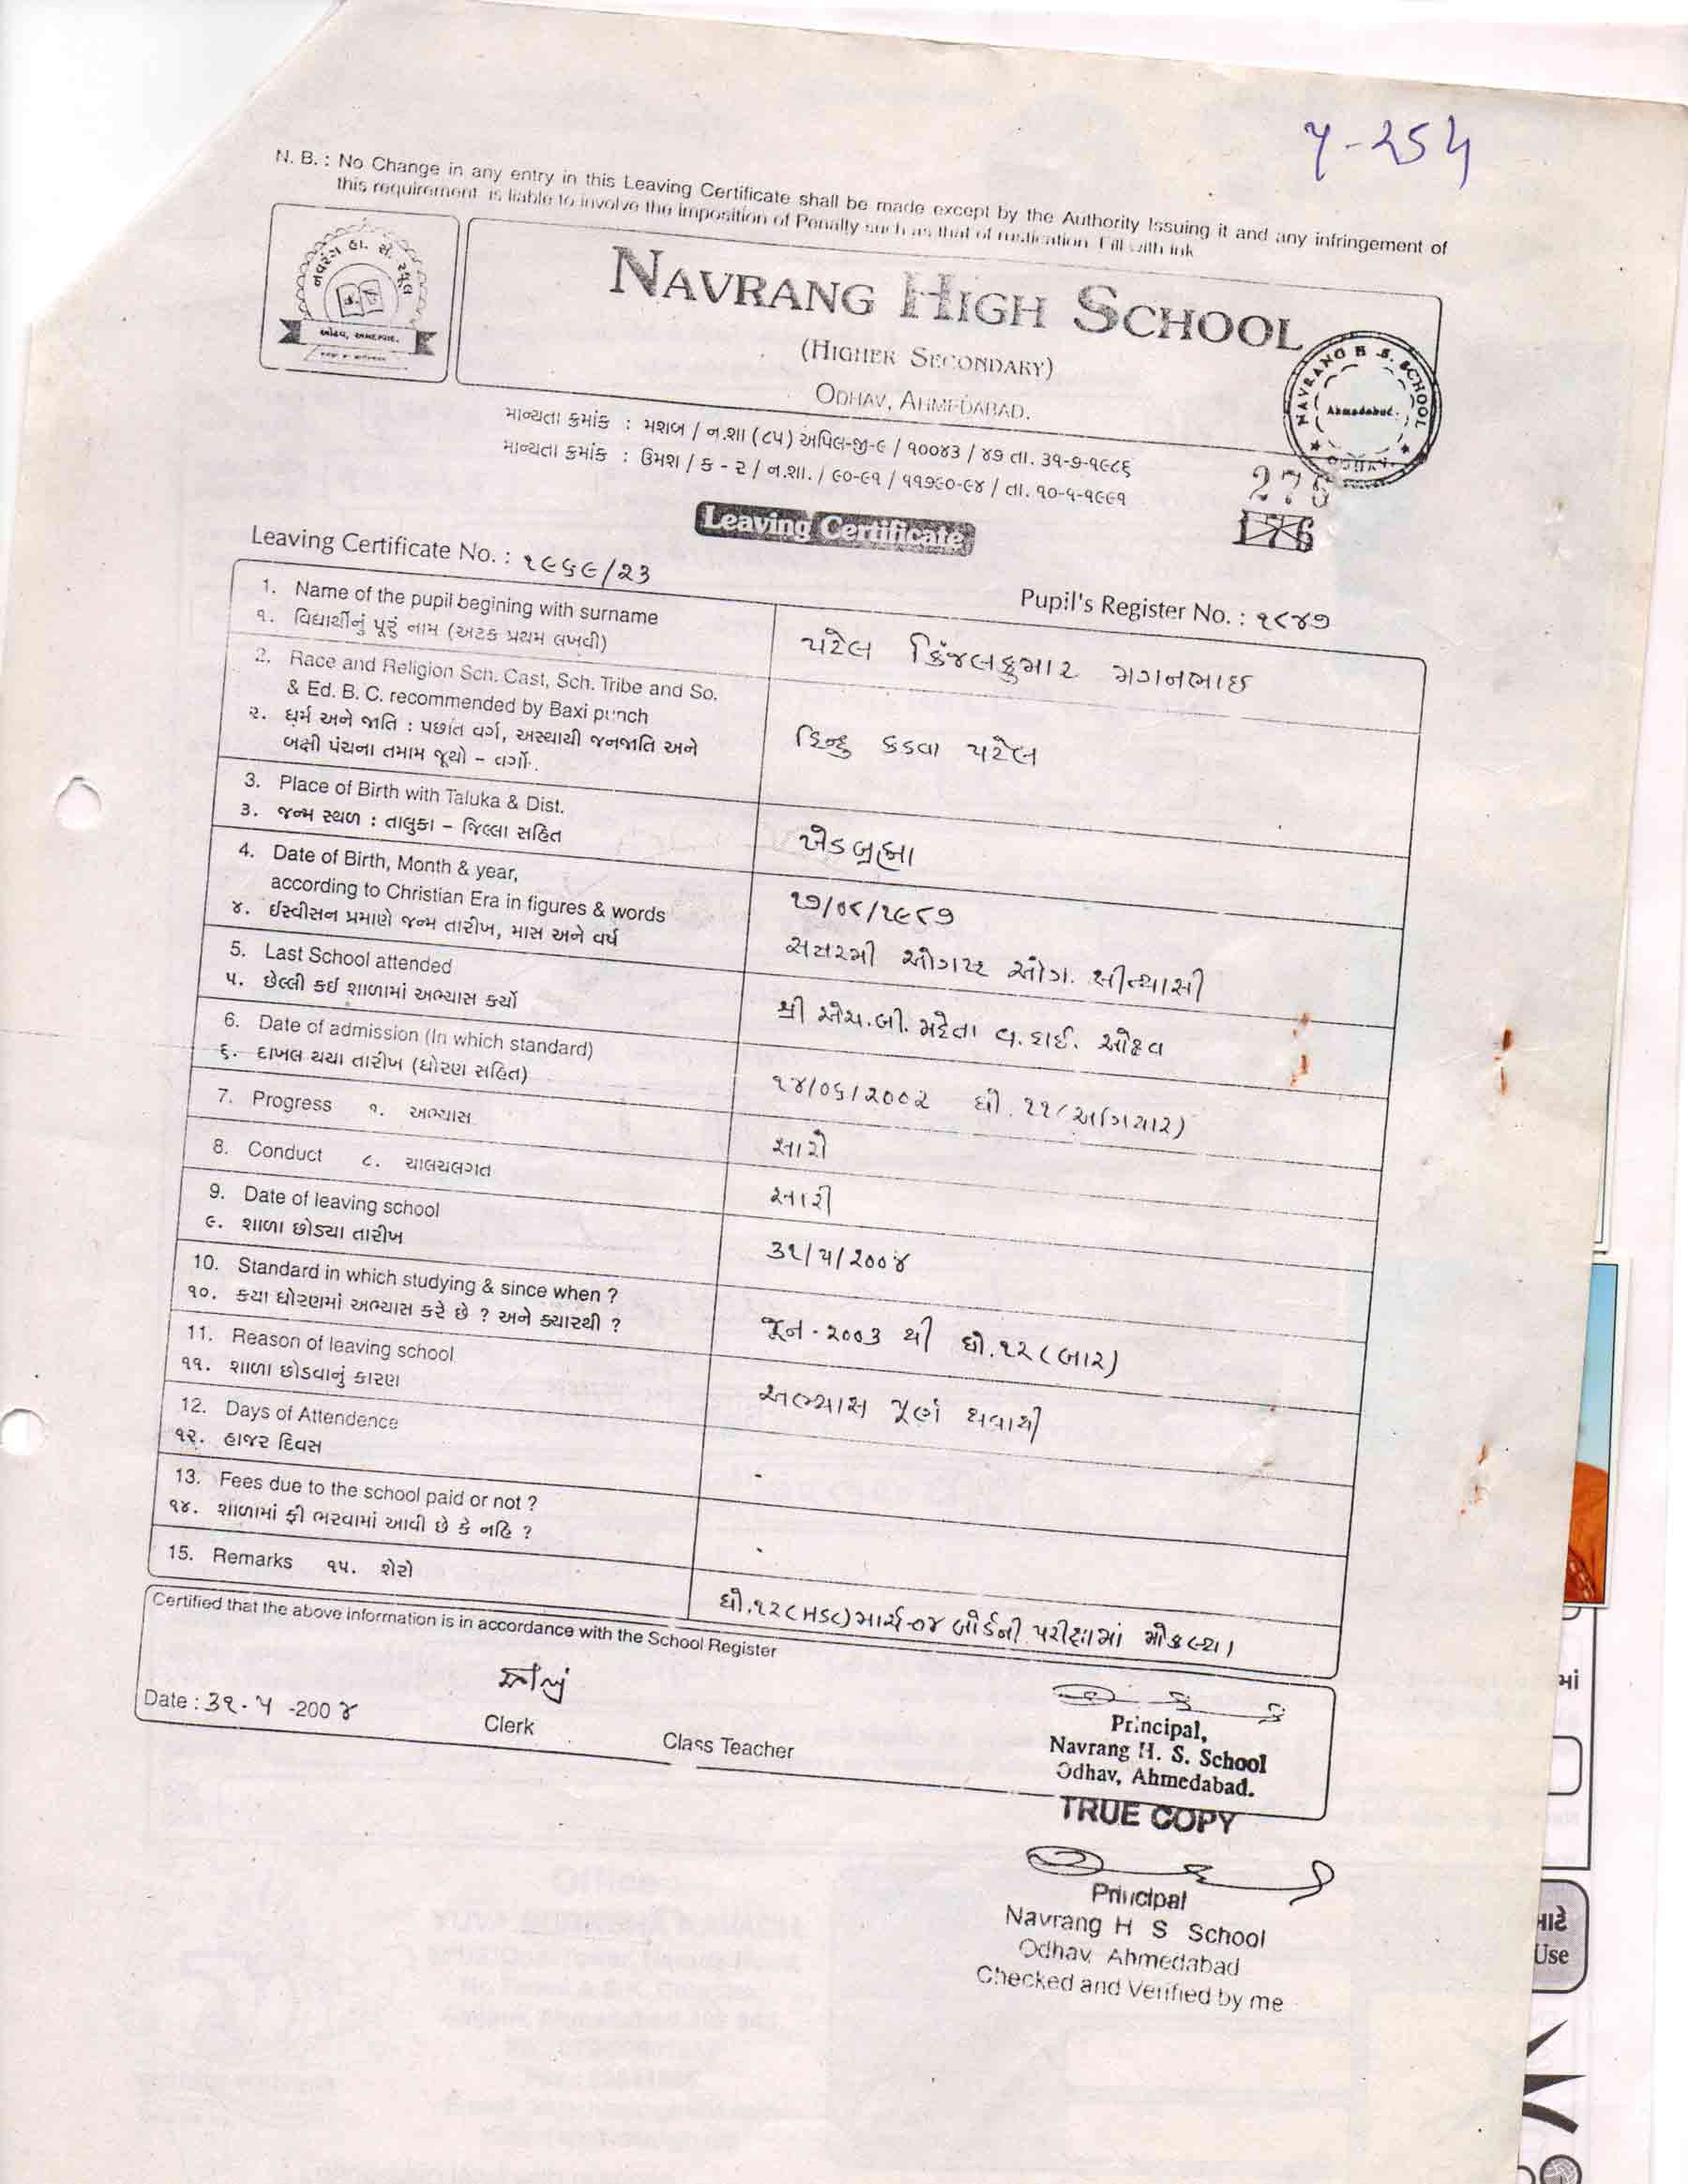 ૫-૨૫૫
N. B. : No Change in any entry in this Leaving Certificate shall be made except by the Authority Issuing it and any infringement of
this requirement is liable to involve the imposition of Penalty such as that of rustication Fill with ink
નવરંગ હા. સે. સ્કૂલ
ઓઢવ, અમદાવાદ.
NAVRANG HIGH SCHOOL
(HIGHER SECONDARY)
ODHAV, AHMEDABAD.
NAVRANG H. S. SCHOOL
Ahmedabad.
ODHAV
માન્યતા ક્રમાંક : મશબ / ન.શા (૮૫) અપિલ-જી-૯ / ૧૦૦૪૩ / ૪૭ તા. ૩૧-૭-૧૯૮૬
માન્યતા ક્રમાંક : ઉમશ / ક - ૨ / ન.શા. / ૯૦-૯૧ / ૧૧૭૯૦-૯૪ / તા. ૧૦-૧-૧૯૯૧
275
176
Leaving Certificate
Leaving Certificate No. : ૧૯૬૯/૨૩
Pupil's Register No. : ૧૮૪૭
1. Name of the pupil begining with surname
૧. વિદ્યાર્થીનું પૂરું નામ (અટક પ્રથમ લખવી)
પટેલ કિંજલકુમાર મગનભાઈ
2. Race and Religion Sch. Cast, Sch. Tribe and So.
& Ed. B. C. recommended by Baxi punch
૨. ધર્મ અને જાતિ : પછાત વર્ગ, અસ્થાયી જનજાતિ અને
બક્ષી પંચના તમામ જૂથો - વર્ગો.
હિન્દુ કડવા પટેલ
3. Place of Birth with Taluka & Dist.
૩. જન્મ સ્થળ : તાલુકા - જિલ્લા સહિત
ખેડબ્રહ્મા
4. Date of Birth, Month & year,
according to Christian Era in figures & words
૪. ઈસ્વીસન પ્રમાણે જન્મ તારીખ, માસ અને વર્ષ
૧૭/૦૮/૧૯૮૭
સત્તરમી ઓગષ્ટ ઓગ. સીત્યાસી
5. Last School attended
૫. છેલ્લી કઈ શાળામાં અભ્યાસ કર્યો
શ્રી એચ.બી. મહેતા વ. હાઈ. ઓઢવ
6. Date of admission (In which standard)
૬. દાખલ થયા તારીખ (ધોરણ સહિત)
૧૪/૦૬/૨૦૦૨ ધો. ૧૧(અગિયાર)
7. Progress ૧. અભ્યાસ
સારો
8. Conduct ૮. ચાલચલગત
સારી
9. Date of leaving school
૯. શાળા છોડ્યા તારીખ
૩૧/૫/૨૦૦૪
10. Standard in which studying & since when ?
૧૦. કયા ધોરણમાં અભ્યાસ કરે છે ? અને ક્યારથી ?
જૂન - ૨૦૦૩ થી ધો.૧૨(બાર)
11. Reason of leaving school
૧૧. શાળા છોડવાનું કારણ
અભ્યાસ પૂર્ણ થવાથી
12. Days of Attendence
૧૨. હાજર દિવસ
-
13. Fees due to the school paid or not ?
૧૪. શાળામાં ફી ભરવામાં આવી છે કે નહિ ?
-
15. Remarks ૧૫. શેરો
ધો.૧૨(HSC)માર્ચ-૦૪ બોર્ડની પરીક્ષામાં મોકલ્યા
Certified that the above information is in accordance with the School Register
Date : ૩૧-૫ -200૪
Clerk
Class Teacher
Principal,
Navrang H. S. School
Odhav, Ahmedabad.
TRUE COPY
Principal
Navrang H S School
Odhav, Ahmedabad
Checked and Verified by me
માં
માટે
Use